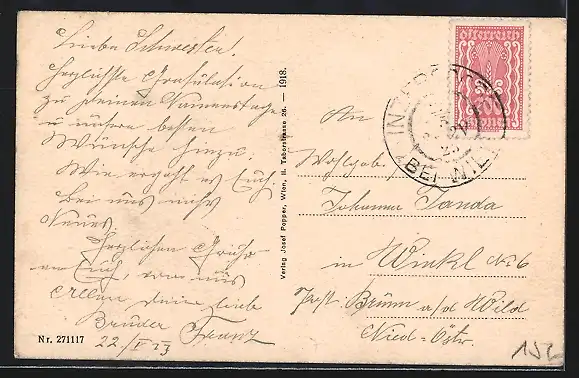 Liebe Schwester!
Herzlichste Gratulation
zu deinem Namenstage
u. unsere besten
Wünsche hinzu.
Wie ergeht es Euch.
Bei uns nichts
Neues
Herzlichen Gruß
an Euch, von uns
Allen deine liebe
Bruder Franz
22./V 23
Nr. 271117
Verlag Josef Popper, Wien, II. Taborstrasse 26. — 1918.
österreich
BEI WIEN
An
Wohlgeb.
Johanna Janda
in Winkl No 6
Post: Brunn a/d Wild
Nied-Östr.